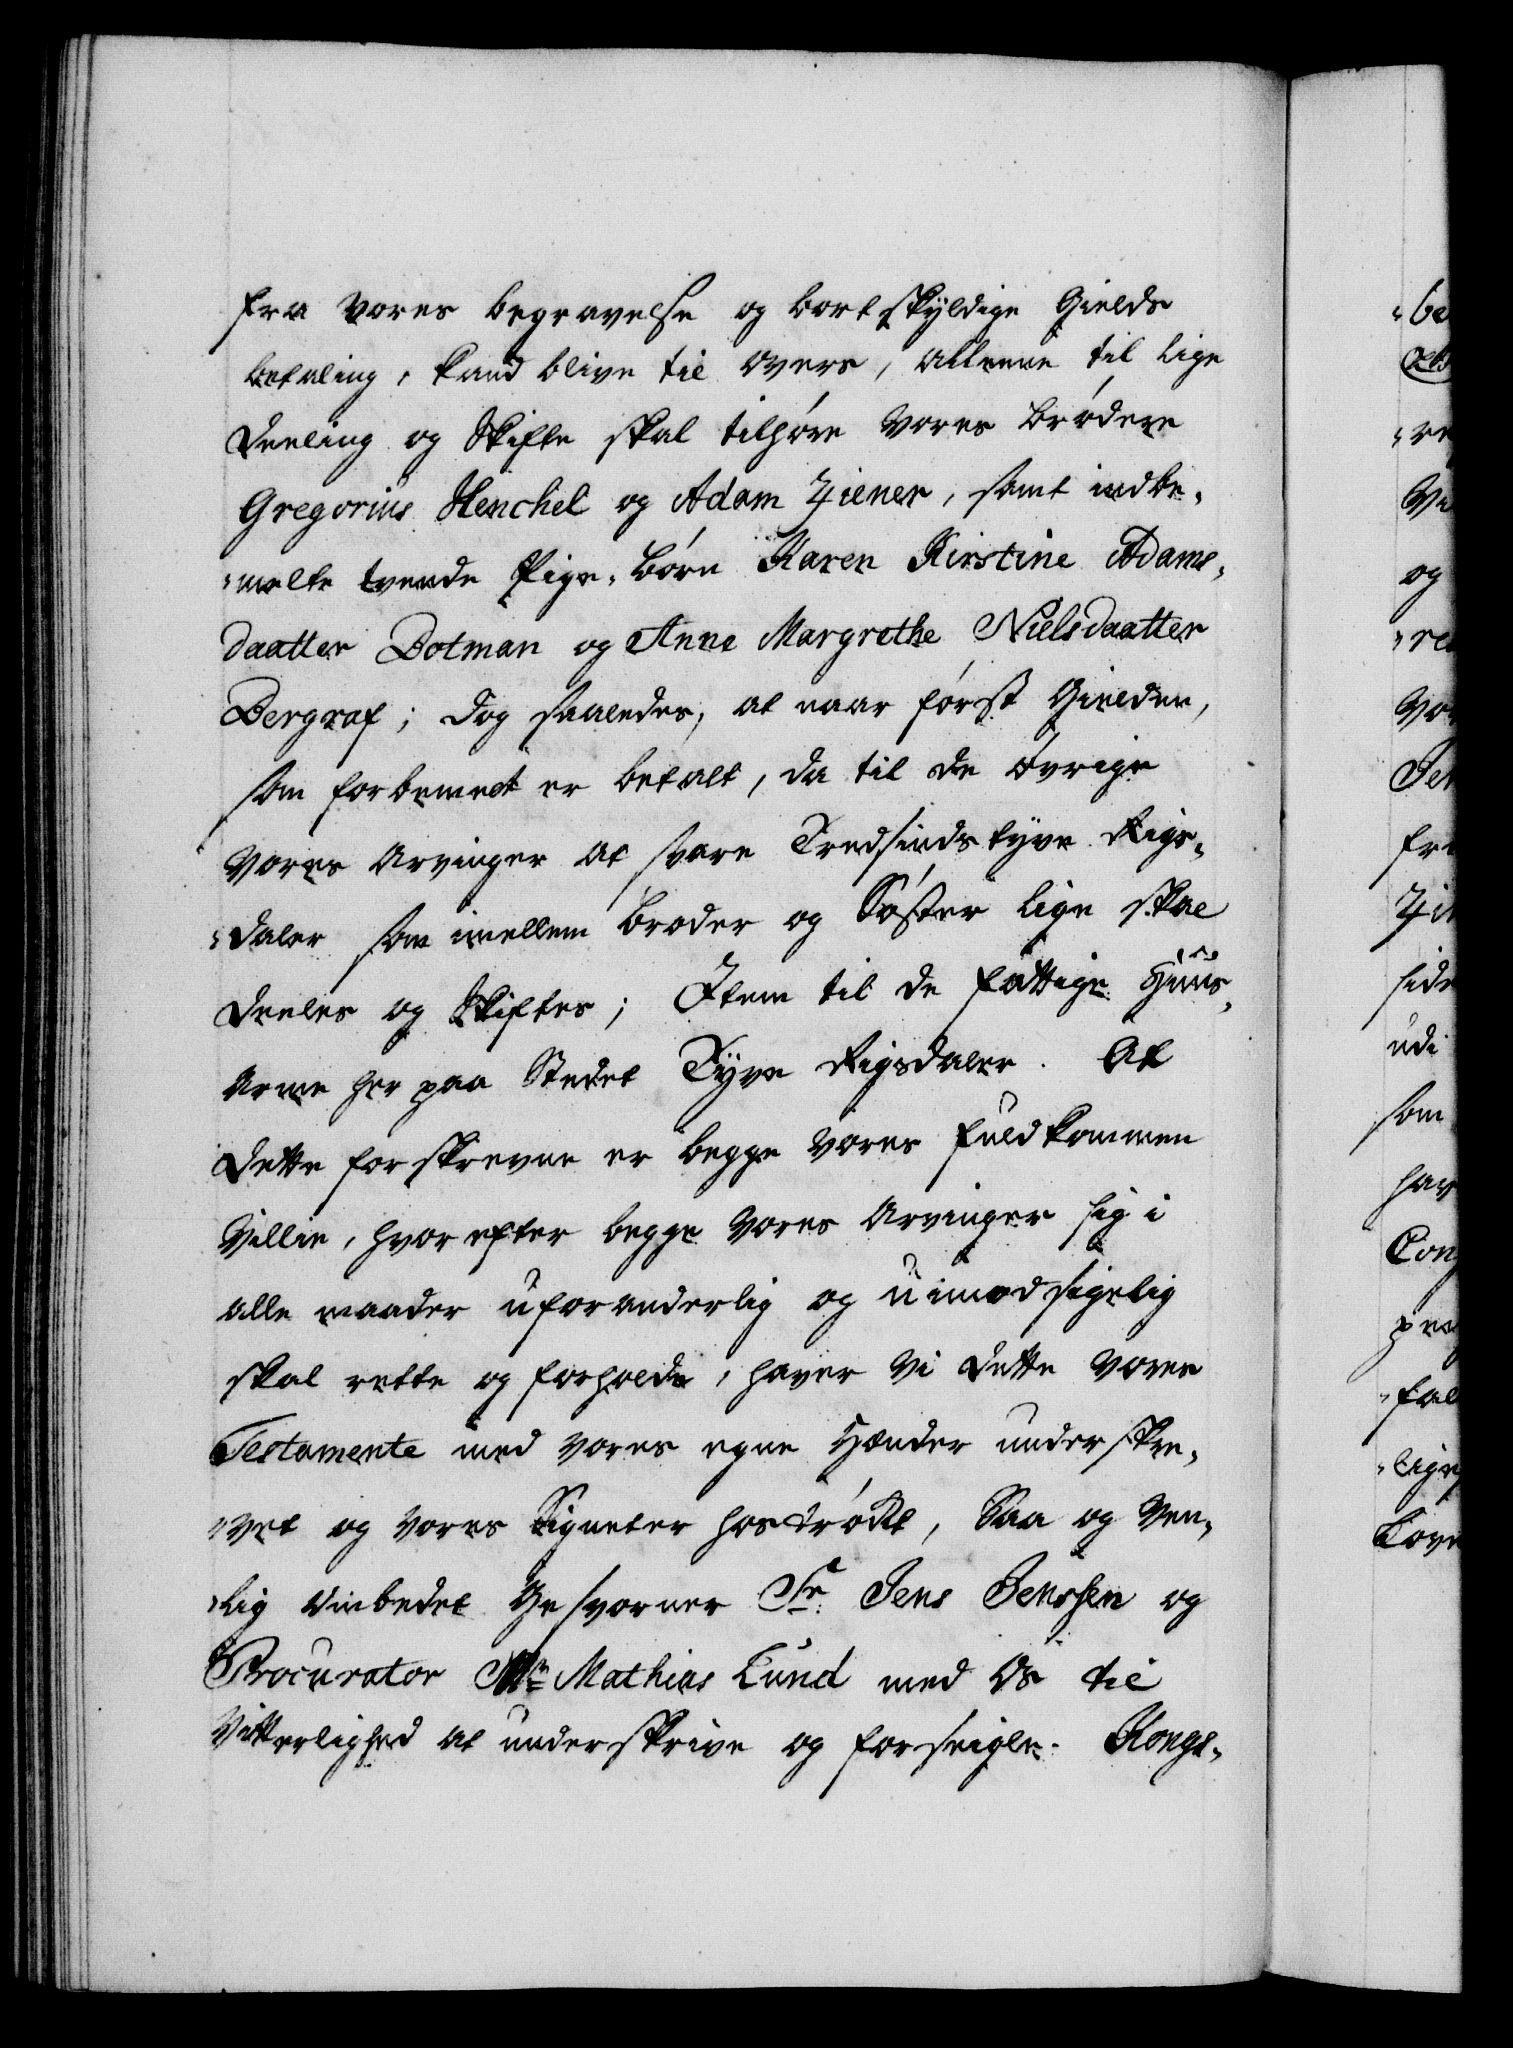 fra vores begravelse og bortskyldige Gields
betaling, kand blive til overs, alleene til lige
Deeling og Skifte skal tilhøre vores brødere
Gregorius Henchel og Adam Ziener, samt indbe-
-melte tvende Pige-børn Karen Kirstine Adams-
daatter Botman og Anne Margrethe Nielsdaatter
Bergraf; dog saaledes, at naar først Gielden,
som forbemelt er betalt, da til de øvrige
vores Arvinger at svare Tredsindstyve Rigs-
-daler som imellem broder og Søster lige skal
deeles og Skiftes; Item til de fattige Huus-
arme her paa Stedet Tyve Rigsdaler. At
dette forskrevne er begge vores fuldkommen
Villie, hvorefter begge vores Arvinger sig i
alle maader uforanderlig og uimodsigelig
skal rette og forholde, haver vi dette vores
Testamente med vores egne Hænder underskre-
-vet og vores Signeter hostrøkt, Saa og ven-
-lig ombedet Gesvorner Sr. Jens Jenssen og
Procurator Mr. Mathias Lund med os til
Vitterlighed at underskrive og forseigle. Kongs-